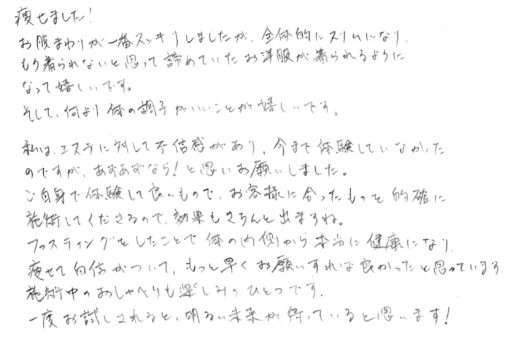 痩せました!
お腹まわりが一番スッキリしましたが、全体的にスリムになり、
もう着られないと思って諦めていたお洋服が着られるように
なって嬉しいです。
そして、何より体の調子がいいことが嬉しいです。
私は、エステに対して不信感があり、今まで体験していなかった
のですが、なら!と思いお願いしました。
ご自身で体験して良いもので、お客様に合ったもっと的確に
施術してくださるので、効果もきちんと出ますね。
ファスティングをしたことで体の内側から本当に健康になり、
痩せて自信がついて、もっと早くお願いすれば良かったと思っています
施術中のおしゃべりも楽しみのひとつです。
一度お試しされると、明るい未来が待っていると思います!